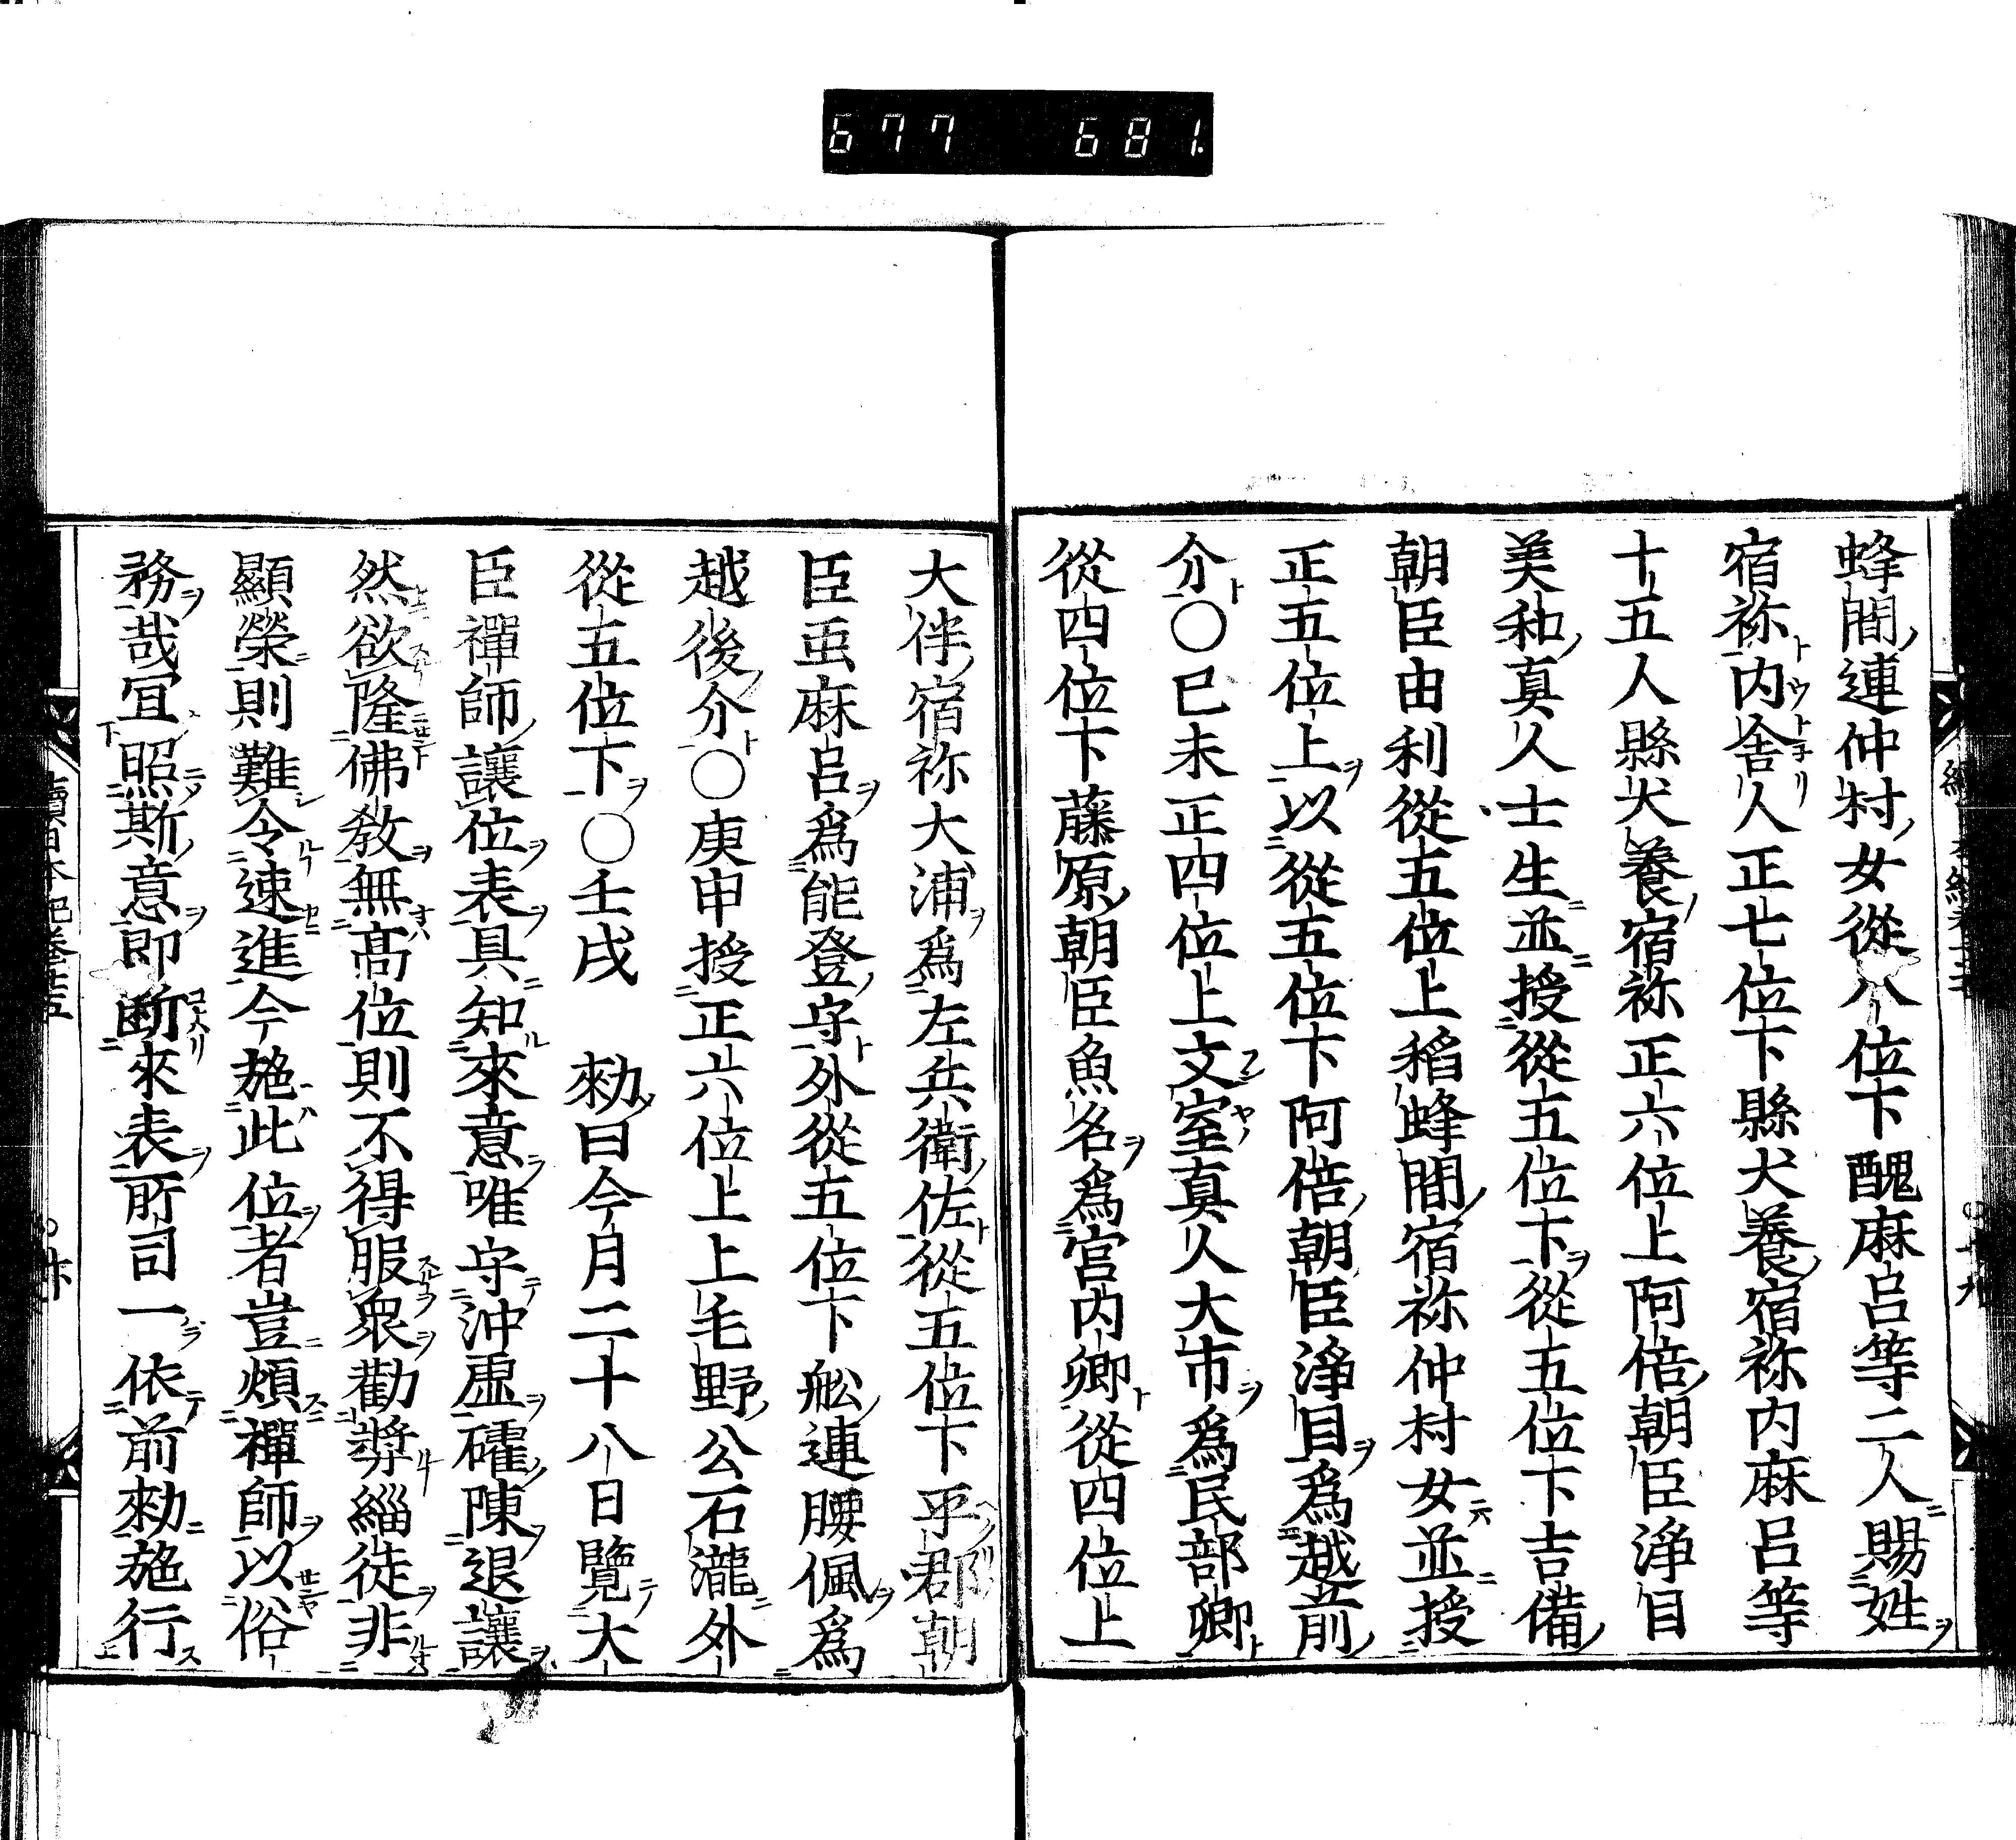 677 681
蜂間連仲村女從八位下醜麻呂等二人賜姓
宿祢内舍人正七位下縣犬養宿祢内麻呂等
十五人縣犬養宿祢正六位上阿倍朝臣淨目
美和真人士生並授從五位下從五位下吉備
朝臣由利從五位上稻蜂間宿祢仲村女並授
正五位上以從五位下阿倍朝臣淨目爲越前
介○已未正四位上文室真人大市爲民部卿
從四位下藤原朝臣魚名爲宮内卿從四位上
大伴宿祢大浦爲左兵衛佐從五位下平郡朝
臣虫麻呂爲能登守外從五位下舩連腰佩爲
越後介○庚申授正六位上上毛野公石瀧外
從五位下○壬戌　勑曰今月二十八日覽大
臣禪師讓位表具知來意唯守沖虛確陳退讓
然欲隆佛教無髙位則不得服衆勸奬緇徒非
顯榮則難令速進今施此位者豈煩禪師以俗
務哉冝照斯意即断來表所司一依前勑施行